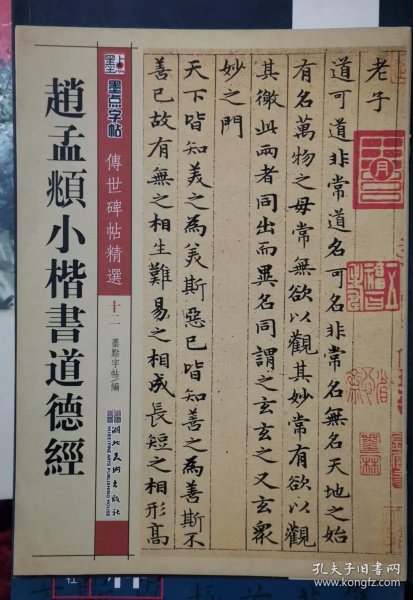 墨点字帖
傳世碑帖精選
十二
墨點字帖 編
湖北美術出版社
HUBEI FINE ARTS PUBLISHING HOUSE
趙孟頫小楷書道德經
老子
道可道非常道名可名非常名無名天地之始
有名萬物之母常無欲以觀其妙常有欲以觀
其徼此兩者同出而異名同謂之玄玄之又玄衆
妙之門
天下皆知美之為美斯惡已皆知善之為善斯不
善已故有無之相生難易之相成長短之相形高
孔夫子旧书网
www.kongfz.com